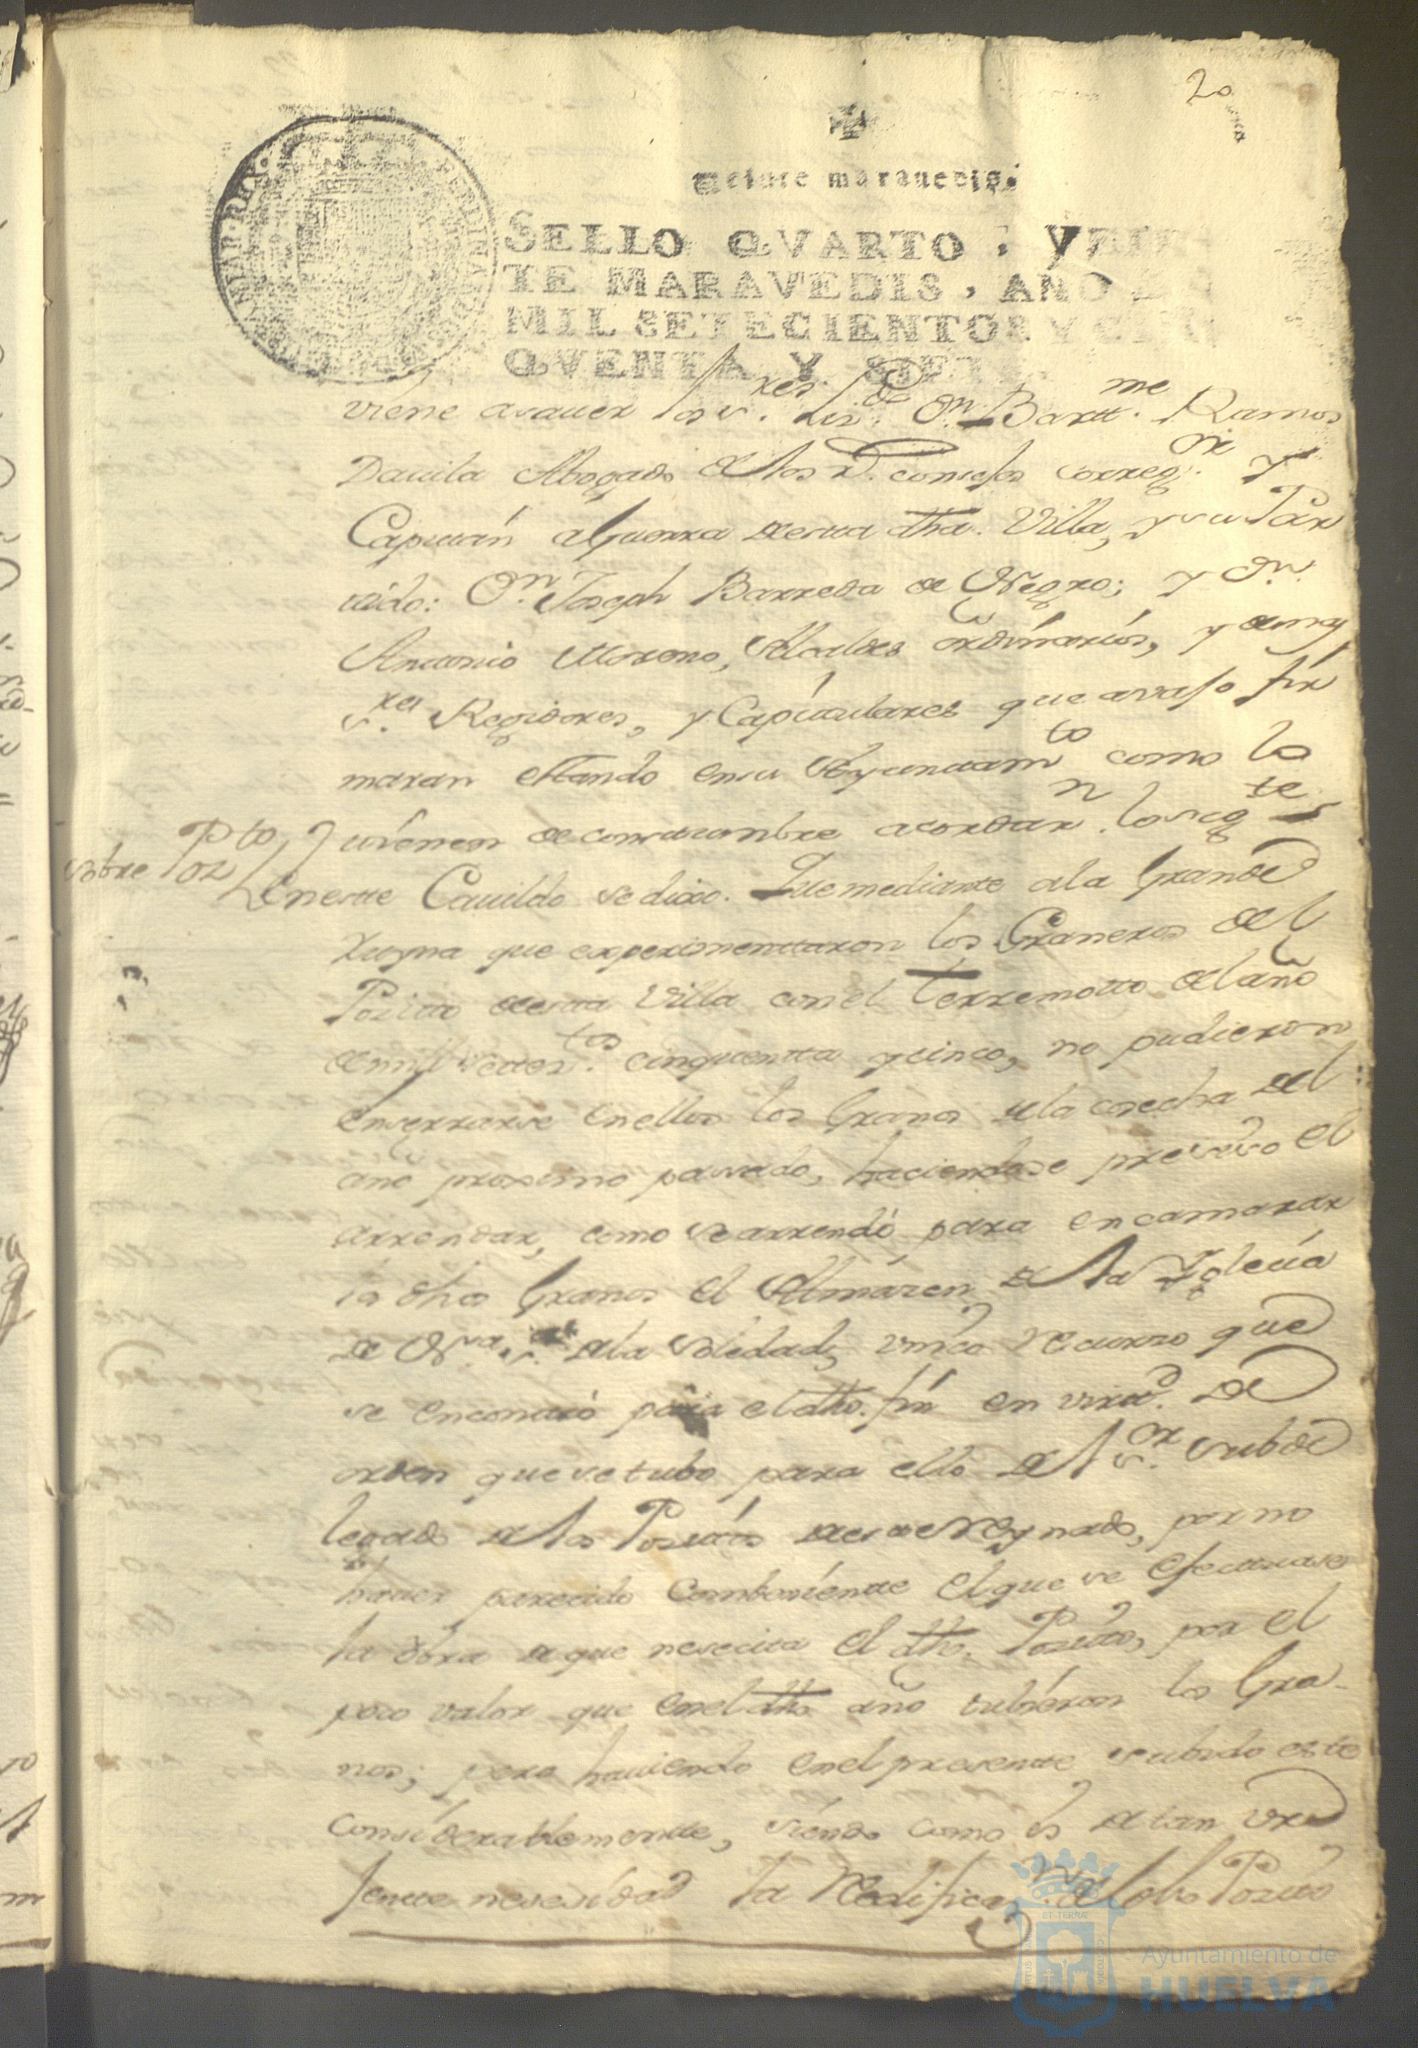 20
veinte maravedis.
SELLO QVARTO, VEIN
TE MARAVEDIS, AÑO DE
MIL SETECIENTOS Y CIN
QVENTA Y SIETE
viene asauer los s.res Liz.do Dn. Bartt.me Ramos
Dauila Abogado de los R. consejos Correg.or y
Capitán aGuerra destta dha. Villa, y su Par
tido: Dn. Joseph Barreda de Negro; y Dn.
Antonio Moreno, Alcaldes ordinarios, y demas
s.res Regidores, y Capitulares que avajo fir
maran estando ensu Ayuntam.to como lo
tienen decosttumbre acordar.n lo sig.te
sobre Pto
oz
Eneste Cauildo se dixo. Que mediante ala Grande
Ruyna que experimenttaron los Graneros del
Positto destta Villa con el terremotto del año
demil settez.tos cinquentta y cinco, no pudieron
enserrarse enellos los Granos dela cosecha del
año proximo pasado, haciendose presiso el
arrendar, como se arrendó para encamarar
la dhos Granos el Almázen de la Yglesia
de Nra. S.ra dela Soledad, vnico recurzo que
se encontró para el dho. fin en virtd. de
orden que se tubo para ello del S.or Subde
legado de los Positos de este Reynado, por no
hauer parecido combeniente el que se efectuase
la obra de que nesecita el dho. Positto, por el
poco valor que en el dho año tubieron los Gra-
nos; pero hauiendo en el presente subido este
considerablemente, siendo como es de tan vr
jente nesesidad la Redificaz.n de dho Posito
Ayuntamiento de
HUELVA